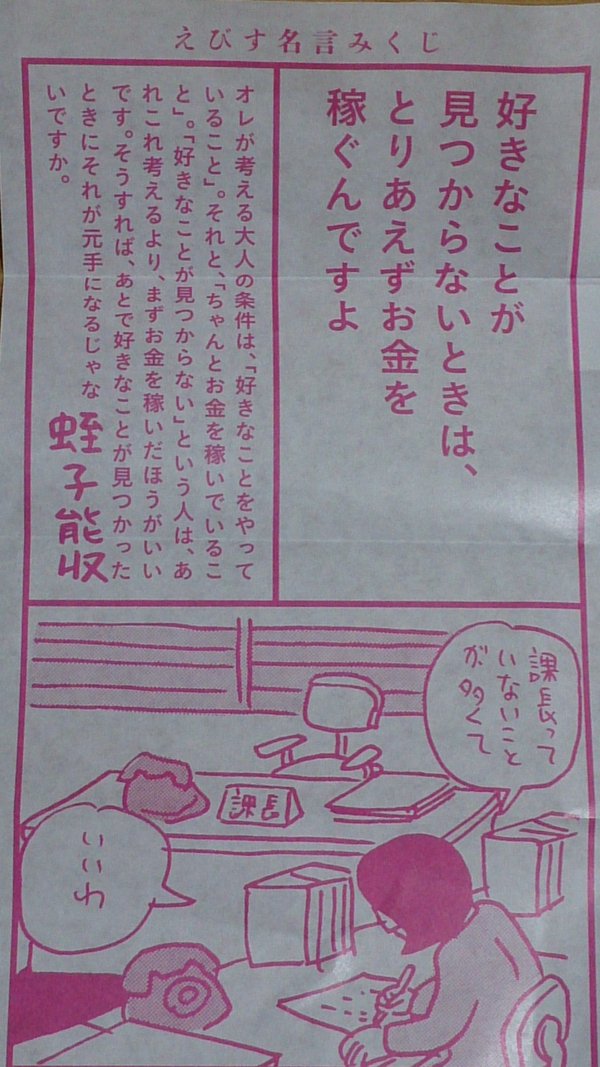 えびす名言みくじ
好きなことが
見つからないときは、
とりあえずお金を
稼ぐんですよ
オレが考える大人の条件は、「好きなことをやって
いること」。それと、「ちゃんとお金を稼いでいるこ
と」。「好きなことが見つからない」という人は、あ
れこれ考えるより、まずお金を稼いだほうがいい
です。そうすれば、あとで好きなことが見つかった
ときにそれが元手になるじゃな
いですか。
蛭子能収
課長って
いないこと
が多くて
課長
いいわ